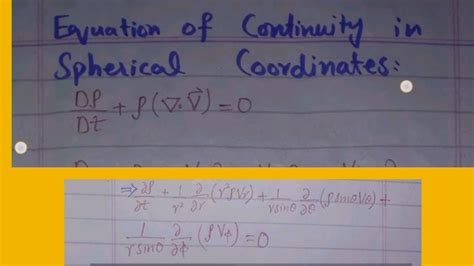 Equation of Continuity in
Spherical Coordinates:
Dρ/Dt + ρ(∇·V⃗) = 0
⇒ ∂ρ/∂t + 1/r² ∂/∂r (r²ρVr) + 1/(r sinθ) ∂/∂θ (ρ sinθ Vθ) +
1/(r sinθ) ∂/∂φ (ρ Vφ) = 0